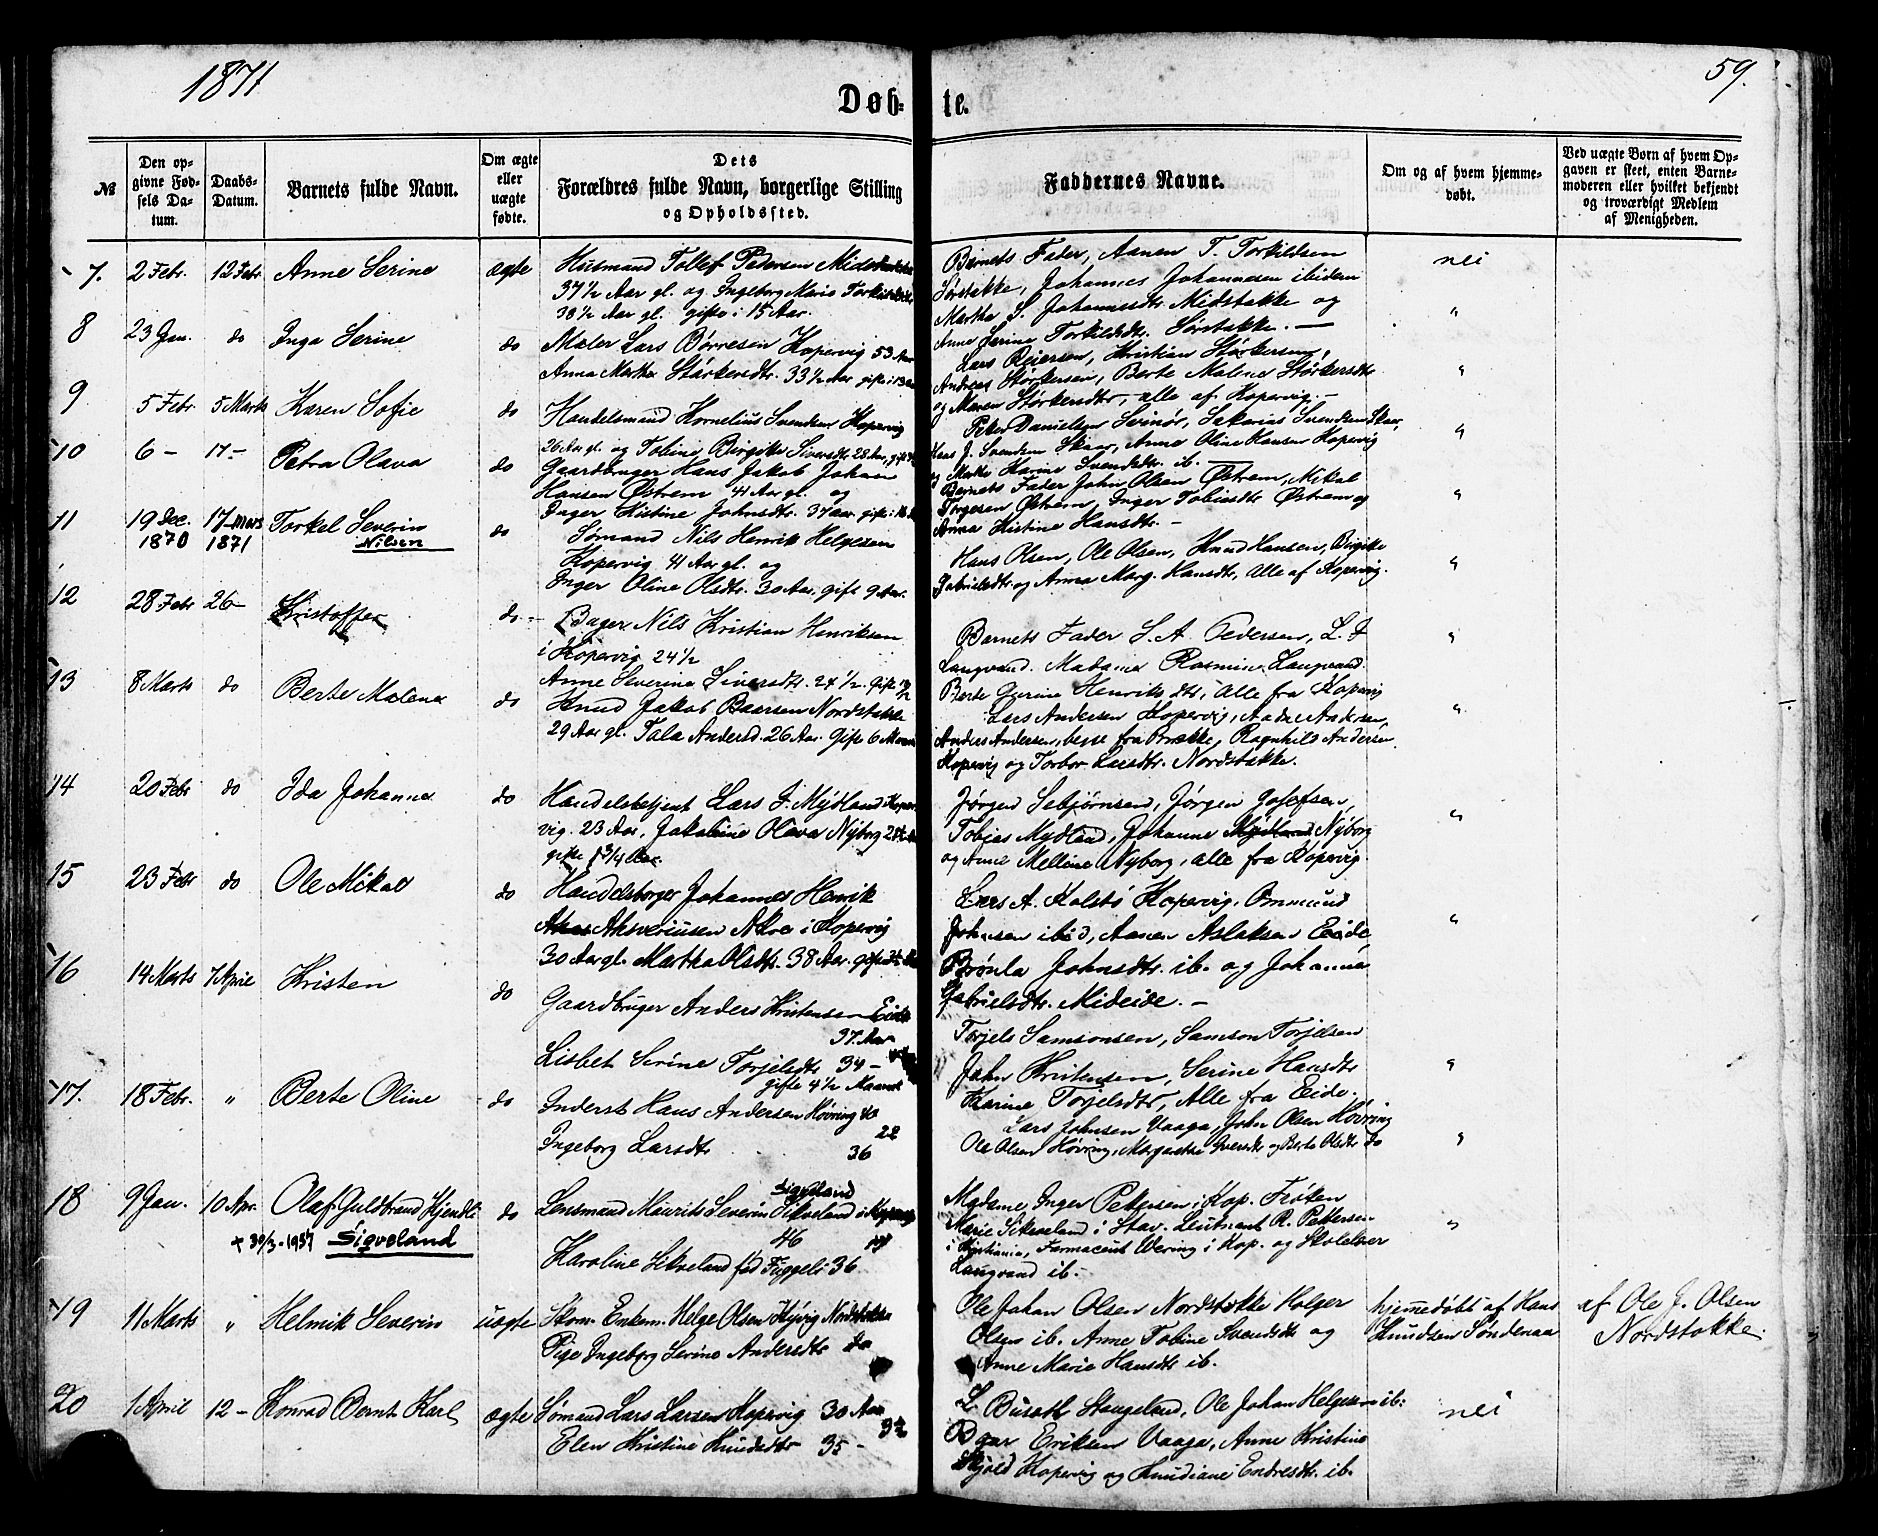 1871
59.
Døb- te.
№
Den opgivne Fødsels Datum.
Daabs-Datum.
Barnets fulde Navn.
Om ægte eller uægte fødte.
Dets Forældres fulde Navn, borgerlige Stilling og Opholdssted.
Faddernes Navne.
Om og af hvem hjemmedøbt.
Ved uægte Børn af hvem Opgaven er skeet, enten Barnemoderen eller hvilket bekjendt og troværdigt Medlem af Menigheden.
7. 2 Febr. 12 Febr. Anne Serine ægte
Husmand Tollef Pedersen
37½ Aar gl. og Ingeborg Marie
38½ Aar gl. gifte i 15 Aar.
Barnets Fader, Aanen T. Torkildsen
Sørstokke, Johannes Johannesen ibidem
Martha S. Johannesdtr. Midstokke og
Anne Serine Torkildsdtr. Sørstokke. —
nei
8 23 Jan. do Inga Serine do
Maler Lars Børresen Kopervig 53 Aar
Anna Martha Størkersdtr. 33½ Aar gift i 13 Aar
Lars Reiersen, Kristian Størkersen,
Andreas Størkersen, Berte Malene Størkersdtr
og Maren Størkersdtr, alle af Kopervig. —
"
9 5 Febr. 5 Marts Karen Sofie do
Handelsmand Kornelius Svendsen Kopervig
26 Aar gl. og Tobine Birgitte Siversdtr. 28 Aar,
Peter Danielsen Svinør, Sakarias Svendsen Skaar,
Hans J. Svendsen Skaar, Anne Oline Hansen Kopervig
og Marthe Karine Svendsdtr. ib. —
"
10 6 — 17 — Petra Olava do
Gaardbruger Hans Jakob Johan
Hansen Østrem 41 Aar gl. og
Inger Kistine Johnsdtr. 37 aar.
Barnets Fader John Olsen Østrem, Mikal
Torgesen Østrem, Inger Tobiasdtr Østrem og
Anna Kistine Hansdtr. —
"
11 19 Dec. 1870 17 — mars 1871 Torkel Severin
Nilsen
do
Sømand Nils Henrik Helgesen
Kopervig 41 Aar gl. og
Inger Oline Olsdtr. 30 Aar, gift 9 Aar.
Hans Olsen, Ole Olsen, Knud Hansen, Birgitte
Gabrielsdtr og Anna Marg. Hansdtr, Alle af Kopervig.
"
12 28 Febr 26 — Kristoffer do
Bager Nils Kristian Henriksen
i Kopervig 24½
Anne Severine Siversdtr. 24½.
Barnets Fader S. A. Pedersen, L. J
Langvand. Madame Rasmine Langvand.
Berte Serine Henriksdtr, Alle fra Kopervig
"
13 8 Marts do Berte Malena do
Knud Jakob Baarsen Nordstokke
29 Aar gl. Tala Andersd. 26 Aar. Gift 6 Maan
Lars Andersen Kopervig, Aadne Andersen,
Anders Andersen, begge fra Brække, Ragnhild Andersen
Kopervig og Torbor Larsdtr. Nordstokke.
"
14 20 Febr do Ida Johanne do
Handelsbetjent Lars J. Mydland Koper-
vig. 23 Aar, Jakobine Olava Nyborg
gifte ¾ Aar.
Jørgen Sebjørnsen, Jørgen Josefsen,
Tobias Mydland, Johanne Nyborg
og Anne Melline Nyborg, alle fra Kopervig.
"
15 23 Febr do Ole Mikal do
Handelsborger Johannes Henrik
Aksveriusen Akre i Kopervig
30 Aar gl. Martha Olsdtr. 38 Aar.
Lars A. Kolstø Kopervig, Ommund
Johnsen ibid, Aanen Aslaksen Eide,
Brønla Johnsdtr. ib. og Johanna
Gabrielsdtr. Mideide. —
"
16 14 Marts 7 April Kristen do
Gaardbruger Anders Kristensen Eide
37 Aar
Lisbet Serine Torjelsdtr 34 —
gifte 4½ Maaned
Torjels Samsonsen, Samson Torjelsen
John Kristensen, Serine Hansdtr
Karine Torjelsdtr, Alle fra Eide.
"
17. 18 Febr. " Berte Oline do
Inderst Hans Andersen Høvring
22
Ingeborg Larsdtr 36
Lars Johnsen Vaaga, John Olsen Høvring
Ole Olsen Høvring, Margrethe Iversdtr og Berte Olsdtr do
"
18 9 Jan. 10 Apr. Olaf Guldbrand Hjendli
+ 30/3-1957 Sigveland
do
Sigveland
Lensmand Mauritz Severin Sikveland i Kopervig
46
Karoline Sikveland fød 36
Madame Inger Pettersen i Kop. Frøken
Marie Sikveland i Stav. Leutnant R. Pettersen
i Kristiania, Farmaceut Wering i Kop. og Skolelærer
Langvand ib.
"
19 11 Marts " Helmik Severin uægte
Skom. Enkem. Helge Olsen Nordstokke
Pige Ingeborg Serine Andersdtr do
Ole Johan Olsen Nordstokke Holger
Olsen ib. Anne Tobine Svendsdtr og
Anne Marie Hansdtr ib.
hjemmedøbt af Hans
Knudsen Søndenaa
af Ole J. Olsen
Nordstokke.
20 1 April 12 — Konrad Bernt Karl ægte
Sømand Lars Larsen Kopervig 30 Aar
Elen Kristine Knudsdtr 35 —
L. Buseth Stangeland, Ole Johan Helgesen ib.
Eriksen Vaaga, Anne Kristine
Skjold Kopervig og Knudiane Endresdtr. ib.
nei